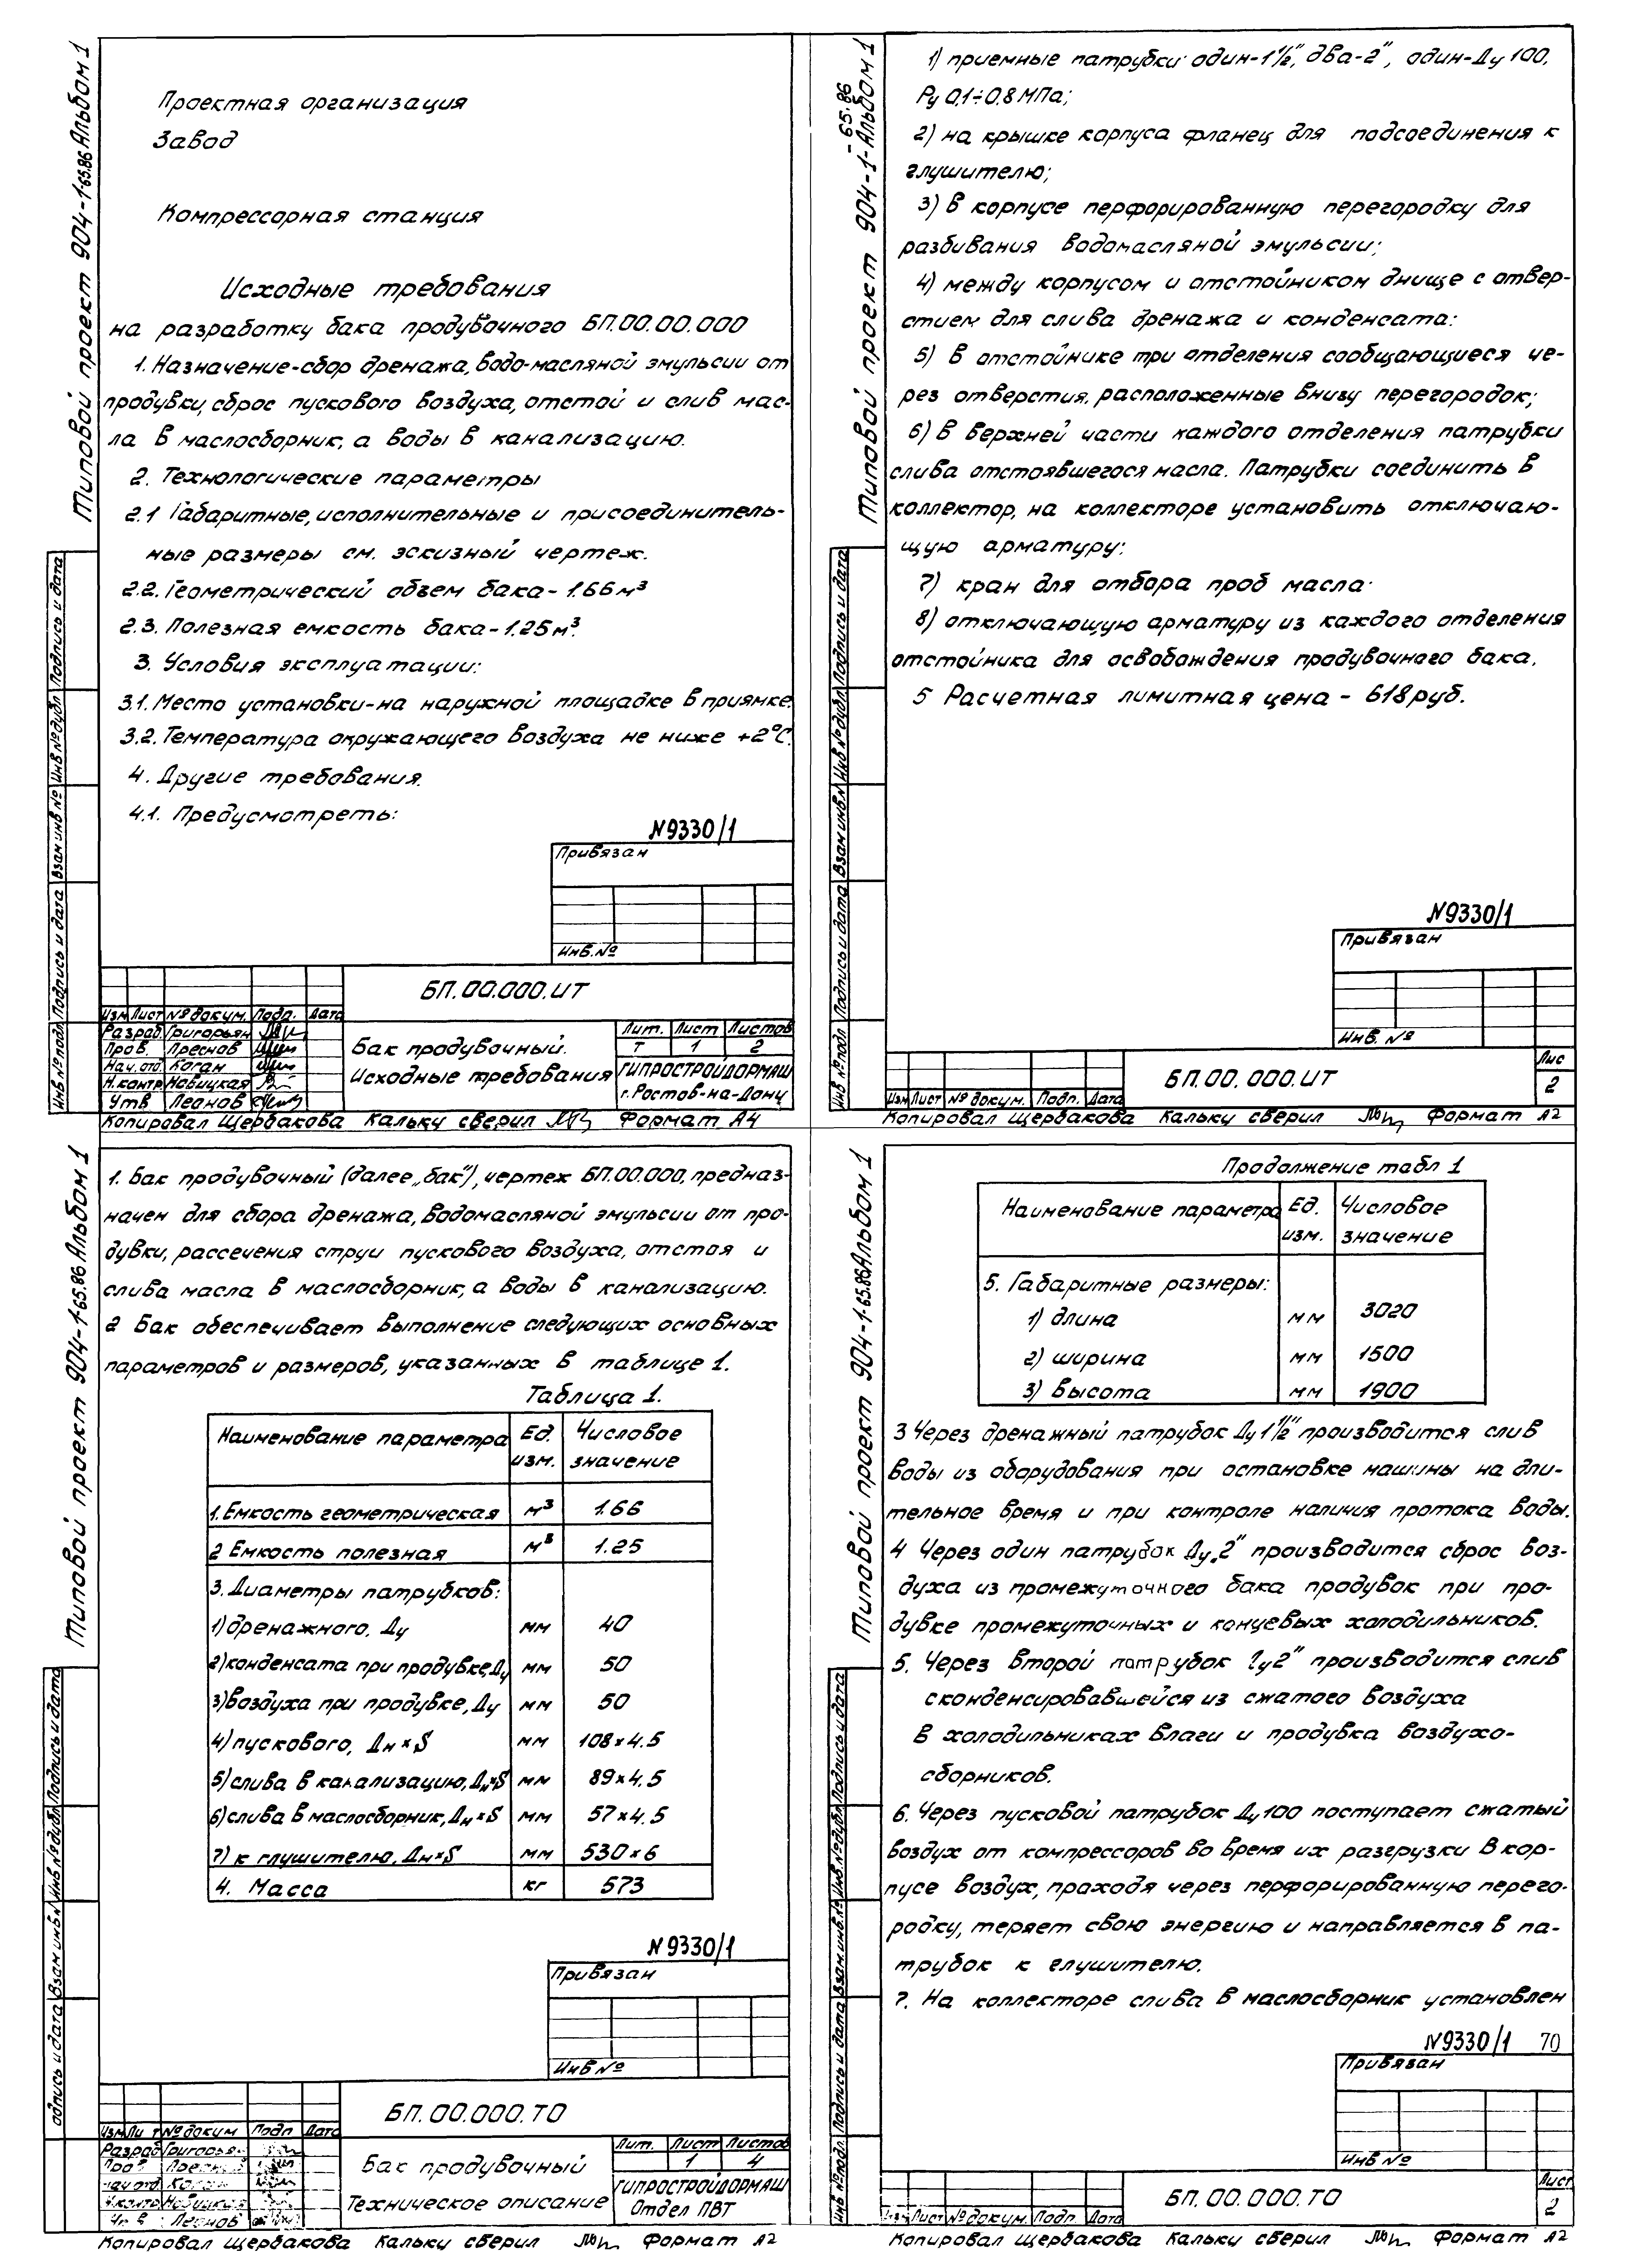 Типовой проект 904-1-65.86 Альбом 1
Проектная организация
Завод
Компрессорная станция
Исходные требования
на разработку бака продувочного БП.00.00.000
1. Назначение-сбор дренажа, водо-масляной эмульсии от
продувки, сброс пускового воздуха, отстой и слив мас-
ла в маслосборник, а воды в канализацию.
2. Технологические параметры
2.1 Габаритные, исполнительные и присоединитель-
ные размеры см. эскизный чертеж.
2.2. Геометрический объем бака - 1.66 м³
2.3. Полезная емкость бака - 1.25 м³.
3. Условия эксплуатации:
3.1. Место установки-на наружной площадке в приямке.
3.2. Температура окружающего воздуха не ниже +2°С.
4. Другие требования.
4.1. Предусмотреть:
N9330/1
Привязан
Инв.№
БП.00.000.ИТ
Изм Лист № докум. Подп. Дата
Разраб. Григорьян
Пров. Преснов
Нач.отд. Коган
Н.контр Новицкая
Утв Леонов
Бак продувочный.
Исходные требования
Лит. Лист Листов
Т 1 2
ГИПРОСТРОЙДОРМАШ
г.Ростов-на-Дону
Инв № подл Подпись и дата Взам инв № Инв № дубл Подпись и дата
Копировал Щербакова Кальку сверил Формат А4
Типовой проект 904-1-65.86 Альбом 1
1) приемные патрубки: один-1½", два-2", один-Ду 100,
Ру 0,1÷0,8 МПа;
2) на крышке корпуса фланец для подсоединения к
глушителю;
3) в корпусе перфорированную перегородку для
разбивания водомасляной эмульсии;
4) между корпусом и отстойником днище с отвер-
стием для слива дренажа и конденсата:
5) в отстойнике три отделения сообщающиеся че-
рез отверстия, расположенные внизу перегородок;
6) в верхней части каждого отделения патрубки
слива отстоявшегося масла. Патрубки соединить в
коллектор, на коллекторе установить отключаю-
щую арматуру:
7) кран для отбора проб масла
8) отключающую арматуру из каждого отделения
отстойника для освобождения продувочного бака.
5 Расчетная лимитная цена - 618 руб.
N9330/1
Привязан
Инв. №
БП.00.000.ИТ
Лис
2
Изм Лист № докум. Подп. Дата
Инв № подл Подпись и дата Взам инв № Инв № дубл Подпись и дата
Копировал Щербакова Кальку сверил Формат А2
Типовой проект 904-1-65.86 Альбом 1
1. Бак продувочный (далее „бак"), чертеж БП.00.000, предназ-
начен для сбора дренажа, водомасляной эмульсии от про-
дувки, рассечения струи пускового воздуха, отстоя и
слива масла в маслосборник, а воды в канализацию.
2 Бак обеспечивает выполнение следующих основных
параметров и размеров, указанных в таблице 1.
Таблица 1.
Наименование параметра Ед. изм. Числовое значение
1. Емкость геометрическая м³ 1.66
2 Емкость полезная м³ 1.25
3. Диаметры патрубков:
1) дренажного, Ду мм 40
2) конденсата при продувке, Ду мм 50
3) воздуха при продувке, Ду мм 50
4) пускового, Дн×S мм 108×4.5
5) слива в канализацию, Дн×S мм 89×4.5
6) слива в маслосборник, Дн×S мм 57×4.5
7) к глушителю, Дн×S мм 530×6
4. Масса кг 573
N9330/1
Привязан
Инв №
БП.00.000.ТО
Изм Ли т № докум Подп Дата
Разраб Григорья
Преснов
Нач отд Коган
Н.контр Новицкая
Леонов
Бак продувочный
Техническое описание
Лит. Лист Листов
1 4
ГИПРОСТРОЙДОРМАШ
Отдел ПВТ
одпись и дата Взам инв № Инв № дубл Подпись и дата
Копировал Щербакова Кальку сверил Формат А2
Типовой проект 904-1-65.86 Альбом 1
Продолжение табл 1
Наименование параметра Ед. изм. Числовое значение
5. Габаритные размеры:
1) длина мм 3020
2) ширина мм 1500
3) высота мм 1900
3 Через дренажный патрубок Ду 1½" производится слив
воды из оборудования при остановке машины на дли-
тельное время и при контроле наличия протока воды.
4 Через один патрубок Ду „2" производится сброс воз-
духа из промежуточного бака продувок при про-
дувке промежуточных и концевых холодильников.
5. Через второй патрубок Ду2" производится слив
сконденсировавшейся из сжатого воздуха
в холодильниках влаги и продувка воздухо-
сборников.
6. Через пусковой патрубок Ду 100 поступает сжатый
воздух от компрессоров во время их разгрузки В кор-
пусе воздух, проходя через перфорированную перего-
родку, теряет свою энергию и направляется в па-
трубок к глушителю.
7. На коллекторе слива в маслосборник установлен
N9330/1 70
Привязан
Инв №
БП.00.000.ТО
Лист
2
Изм Лист № докум. Подп Дата
Инв № подл Подпись и дата Взам.инв.№ Инв № дубл Подпись и дата
Копировал Щербакова Кальку сверил Формат А2